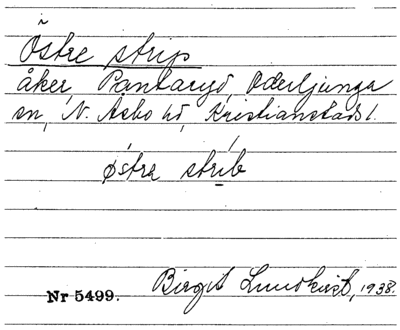 Östre strip
åker, Pantaryd, Oderljunga
sn, N. Åsbo hd, Kristianstads l.
östra strib
Birgit Lundkvist, 1938.
Nr 5499.